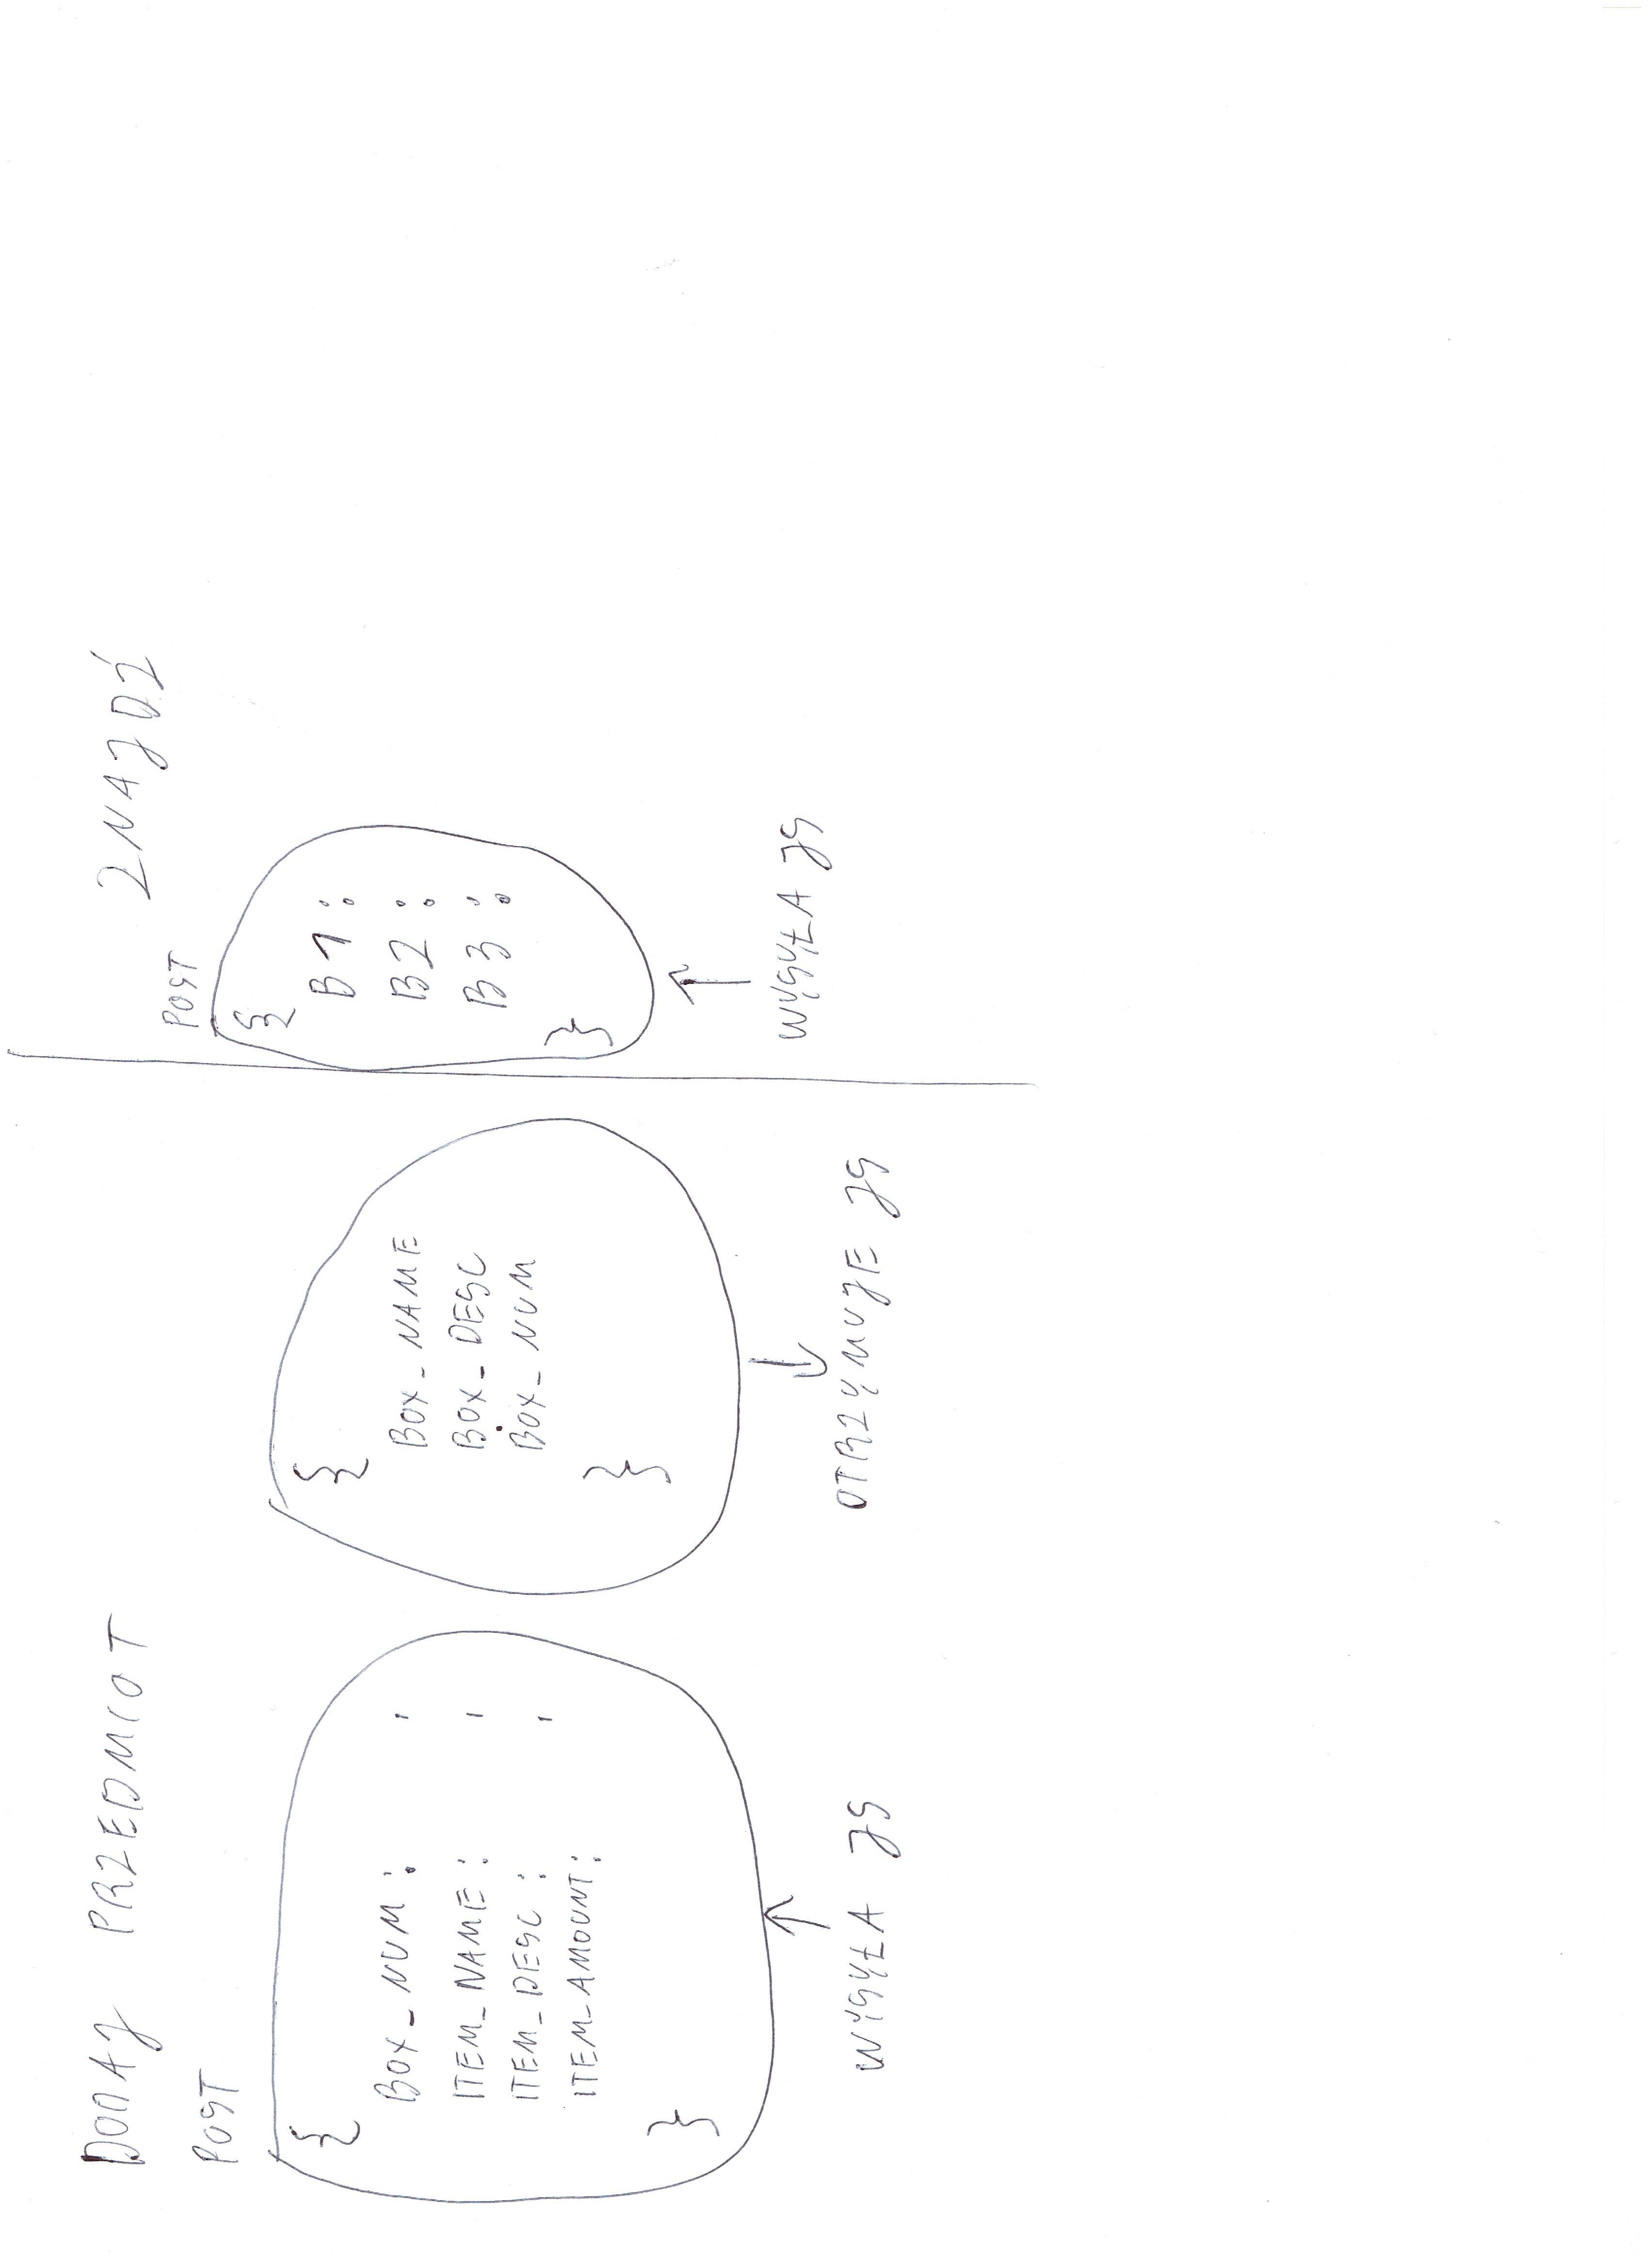 DODAJ PRZEDMIOT
POST
{
BOX_NUM : ,
ITEM_NAME : ,
ITEM_DESC : ,
ITEM_AMOUNT:
}
WYSYŁA JS
{
BOX_NAME
BOX_DESC
BOX_NUM
}
OTRZYMUJE JS
ZNAJDŹ
POST
{
B1 :
B2 :
B3 :
}
WYSYŁA JS